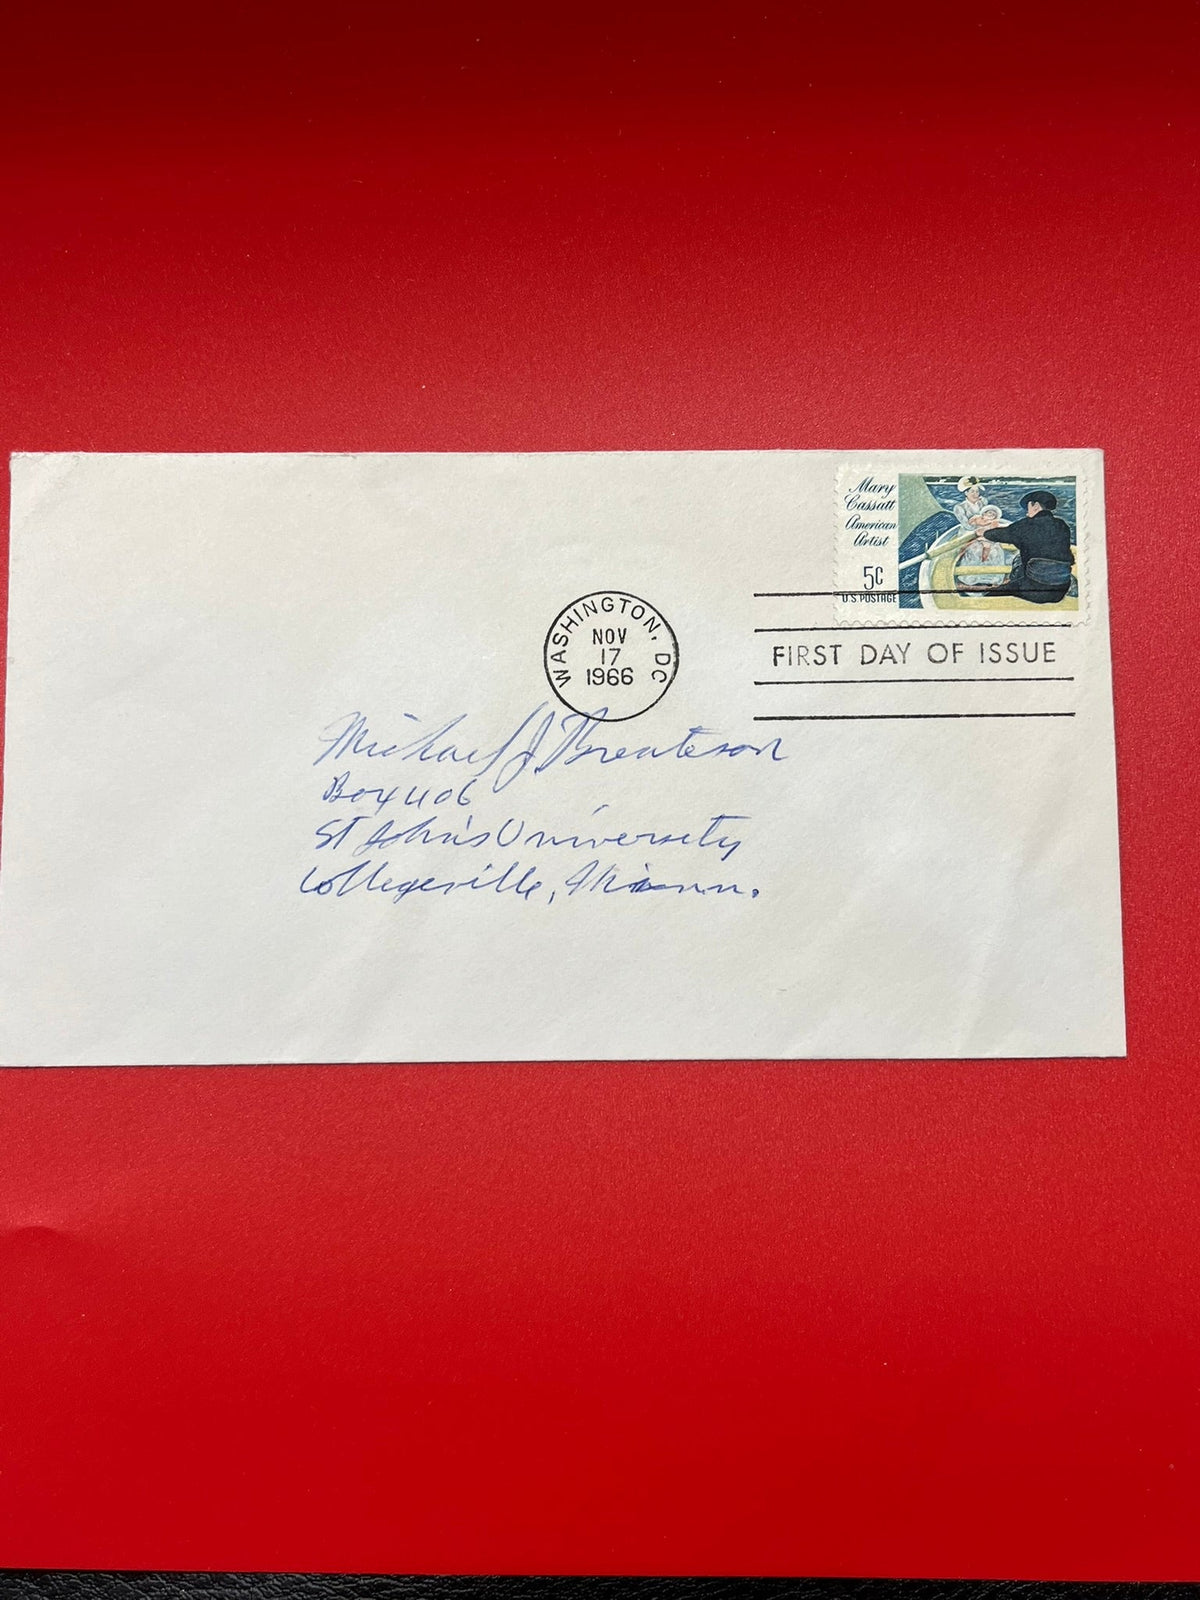 Mary
Cassatt
American
Artist
5c
U.S. POSTAGE
WASHINGTON, DC
NOV
17
1966
FIRST DAY OF ISSUE
Michael J.
Box 406
St John's University
Collegeville, Minn.